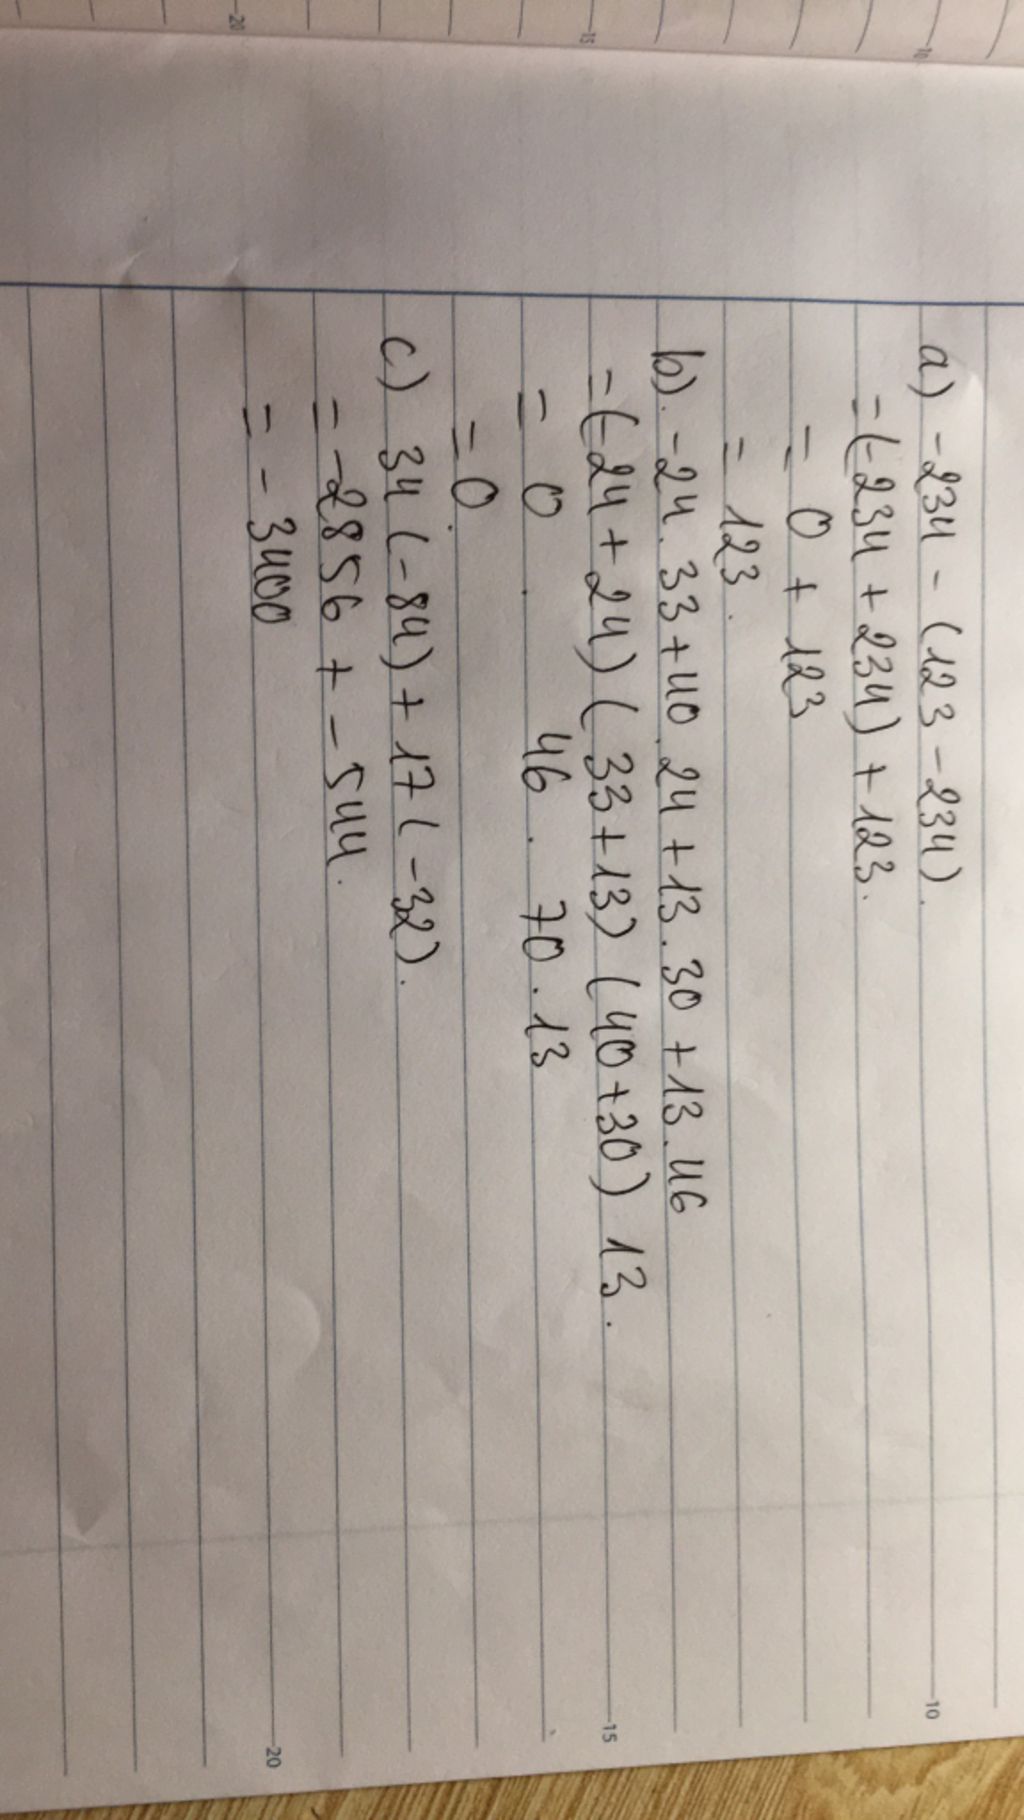 a) -234 - (123 - 234).
= (-234 + 234) + 123.
= 0 + 123
= 123.
b). -24. 33 + 40. 24 + 13. 30 + 13. 46
= (-24 + 24) ( 33 + 13) (40 + 30) 13.
= 0 . 46 . 70 . 13
= 0.
c) 34 (-84) + 17 ( -32).
= -2856 + - 544.
= - 3400
20
15
10
10
15
20